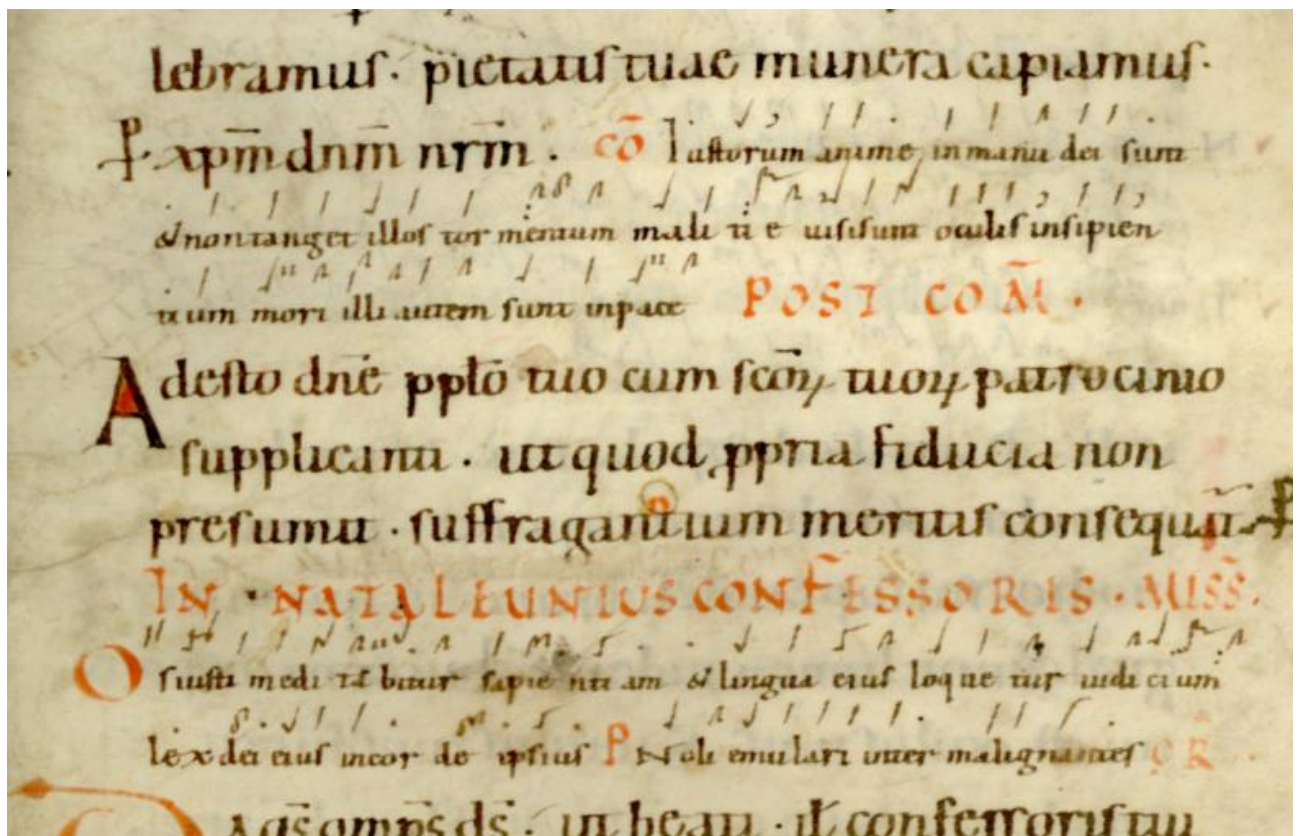 lebramus · pietatis tuae munera capiamus ·
P xpm̄ dnm̄ nrm̄ · CŌ Iustorum anime in manu dei sunt
& non tanget illos tor mentum mali ti e uisi sunt oculis insipien
tium mori illi autem sunt in pace POST COM̄ ·
Adesto dnē pplō tuo cum scōꝝ tuoꝝ patrocinio
supplicanti · ut quod ꝓpria fiducia non
presumit · suffragantium meritis consequat̄
IN · NATALE UNIUS CONFESSORIS · MISS̄.
Os iusti medi ta bitur sapie nti am & lingua eius loque tur iudi cium
lex dei eius in cor de ipsius P Noli emulari inter malignantes OR̄
Da qs̄ omps̄ ds̄ · ut beati · ił confessoris tui